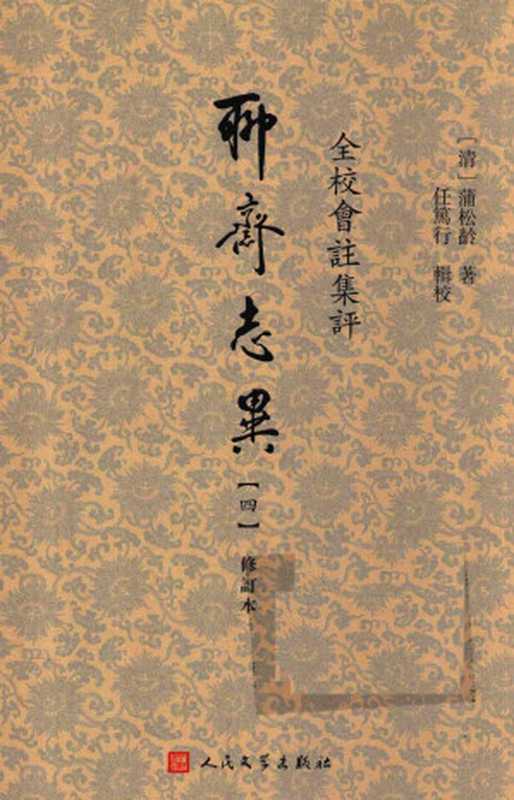 [清]蒲松齡 著
任篤行 輯校
全校會註集評
聊齋志異
【四】 修訂本
人民文学出版社